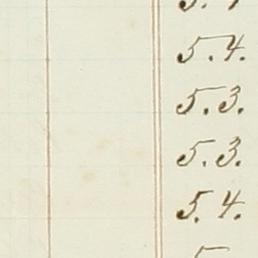 5.4.
5.3.
5.3.
5.4.